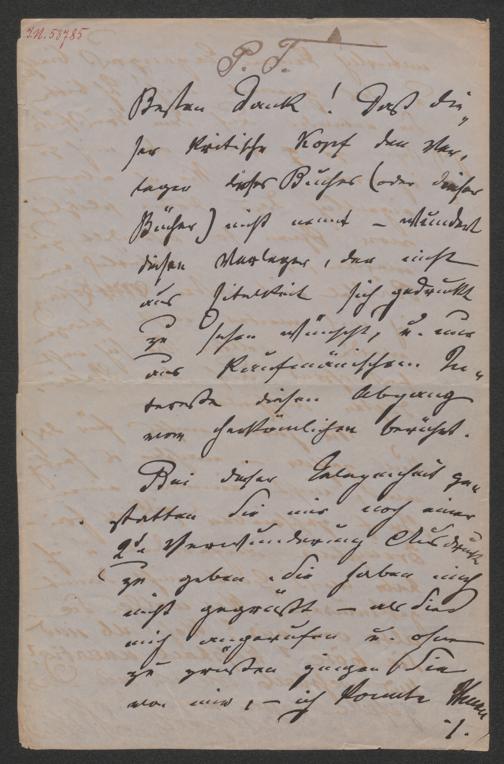 I.N. 58785
P. T.
Besten Dank! Daß die„
ser kritische Kopf den Ver„
leger dieses Buches (oder dieser
Bücher) nicht nennt – wundert
diesen Verleger, der nicht
aus Eitelkeit sich gedruckt
zu sehen wünscht, u. nur
aus kaufmänischem In„
teresse diesen Abgang
vom Herkömlichen berührt.
Bei dieser Gelegenheit ge„
statten Sie mir noch einer
2t. Verwunderung Ausdruck
zu geben. Sie haben mich
nicht gegrüßt – als Sie
mich angerufen u. ohne
zu grüßen gingen Sie
von mir, – ich konnte Ihnen
./.